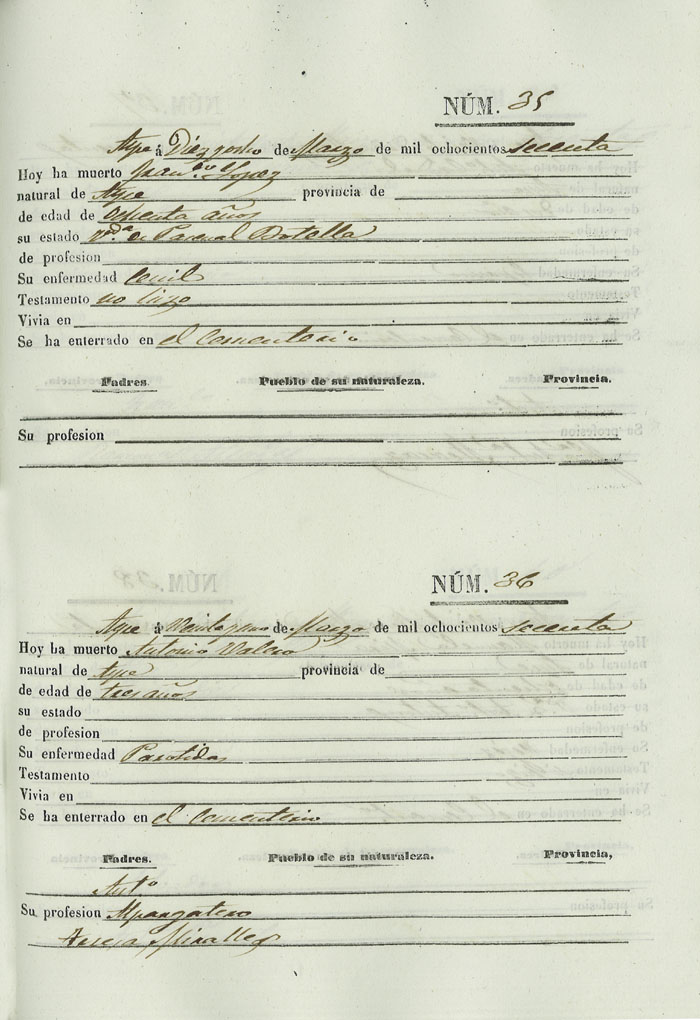 NÚM. 35
Aspe á Diez y ocho de Marzo de mil ochocientos sesenta
Hoy ha muerto Fran.ca Lopez
natural de Aspe provincia de
de edad de ochenta años
su estado V.da de Pascual Botella
de profesion
Su enfermedad Senil
Testamento no hizo
Vivia en
Se ha enterrado en el Cementerio
Padres. Pueblo de su naturaleza. Provincia.
Su profesion
NÚM. 36
Aspe á Veinte y uno de Marzo de mil ochocientos sesenta
Hoy ha muerto Antonio Valero
natural de Aspe provincia de
de edad de tres años
su estado
de profesion
Su enfermedad Parotidas
Testamento
Vivia en
Se ha enterrado en el Cementerio
Padres. Pueblo de su naturaleza. Provincia,
Ant.o
Su profesion Alpargatero
Teresa Miralles